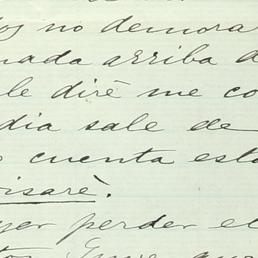 os no demora
nada arriba d
le diré me co
dia sale de
cuenta est
isaré.
yer perder el